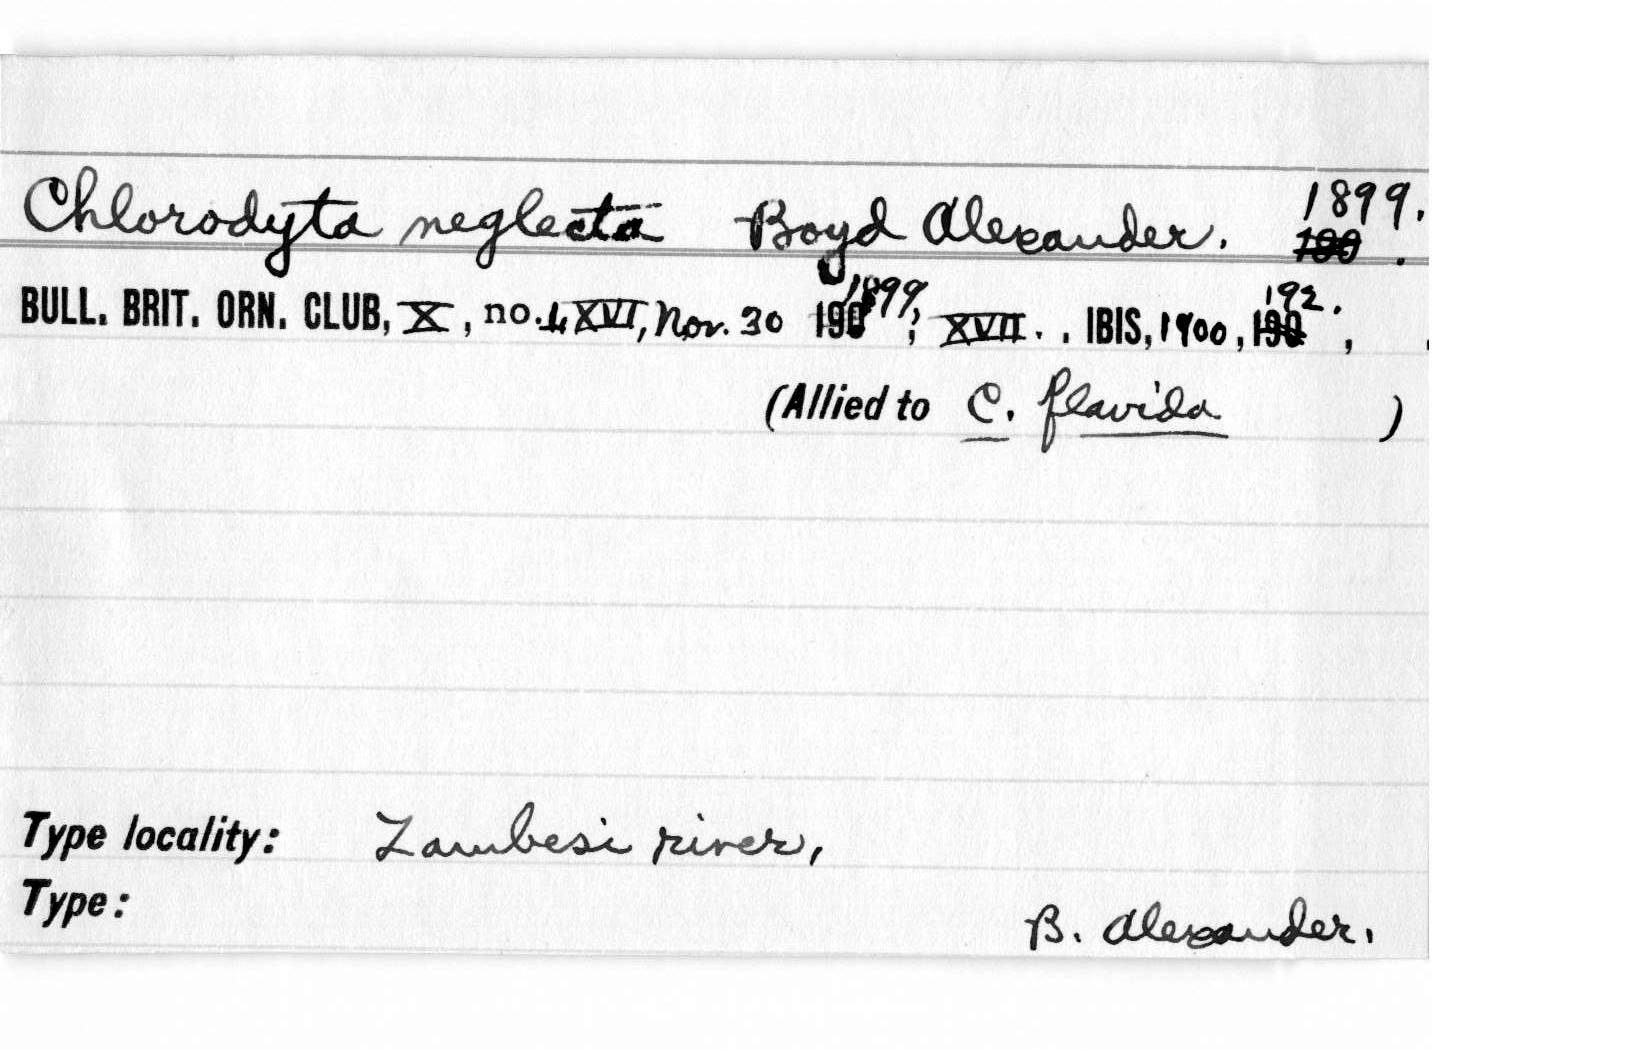 Chlorodyta neglecta Boyd Alexander. 1899.
BULL. BRIT. ORN. CLUB, X, no. LXVI, Nov. 30 1899; XVII. . IBIS, 1900, 192. ,
(Allied to C. flavida )
Type locality: Zambesi river,
Type:
B. Alexander.